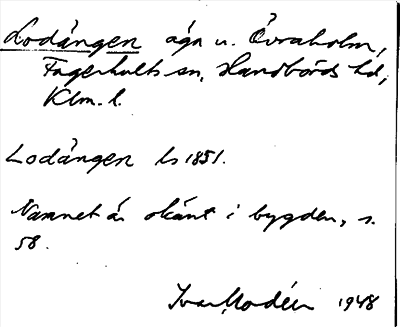 Lodängen äga u. Övraholm,
Fagerhults sn, Handbörds hd,
Klm. l.
Lodängen ls 1851.
Namnet är okänt i bygden, s.
58.
Ivar Modéer 1948